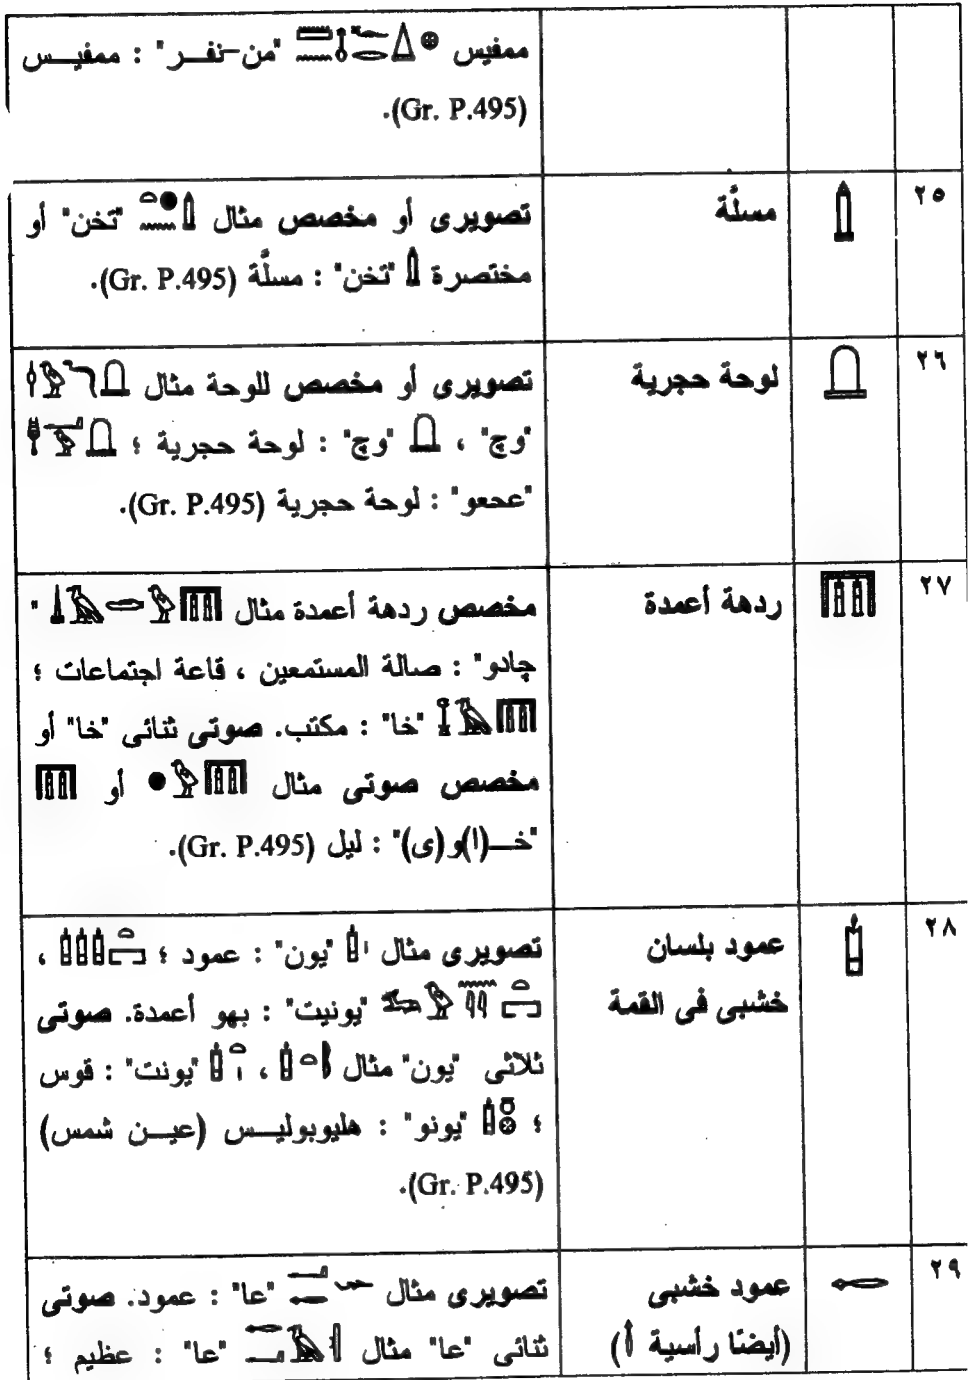 ممفيس "من-نفـــر" : ممفيـــس
(Gr. P.495).
٢٥ مسلَّة تصويرى أو مخصص مثال "تخن" أو
مختصرة "تخن" : مسلَّة (Gr. P.495).
٢٦ لوحة حجرية تصويرى أو مخصص للوحة مثال
"وچ" ، "وچ" : لوحة حجرية ؛
"عحعو" : لوحة حجرية (Gr. P.495).
٢٧ ردهة أعمدة مخصص ردهة أعمدة مثال "
چادو" : صالة المستمعين ، قاعة اجتماعات ؛
"خا" : مكتب. صوتى ثنائى "خا" أو
مخصص صوتى مثال أو
"خـــ(ا)و(ى)" : ليل (Gr. P.495).
٢٨ عمود بلسان تصويرى مثال "يون" : عمود ؛ ،
خشبى فى القمة "يونيت" : بهو أعمدة. صوتى
ثلاثى "يون" مثال ، "يونت" : قوس
؛ "يونو" : هليوبوليـــس (عيـــن شمس)
(Gr. P.495).
٢٩ عمود خشبى تصويرى مثال "عا" : عمود. صوتى
(أيضًا رأسية ) ثنائى "عا" مثال "عا" : عظيم ؛